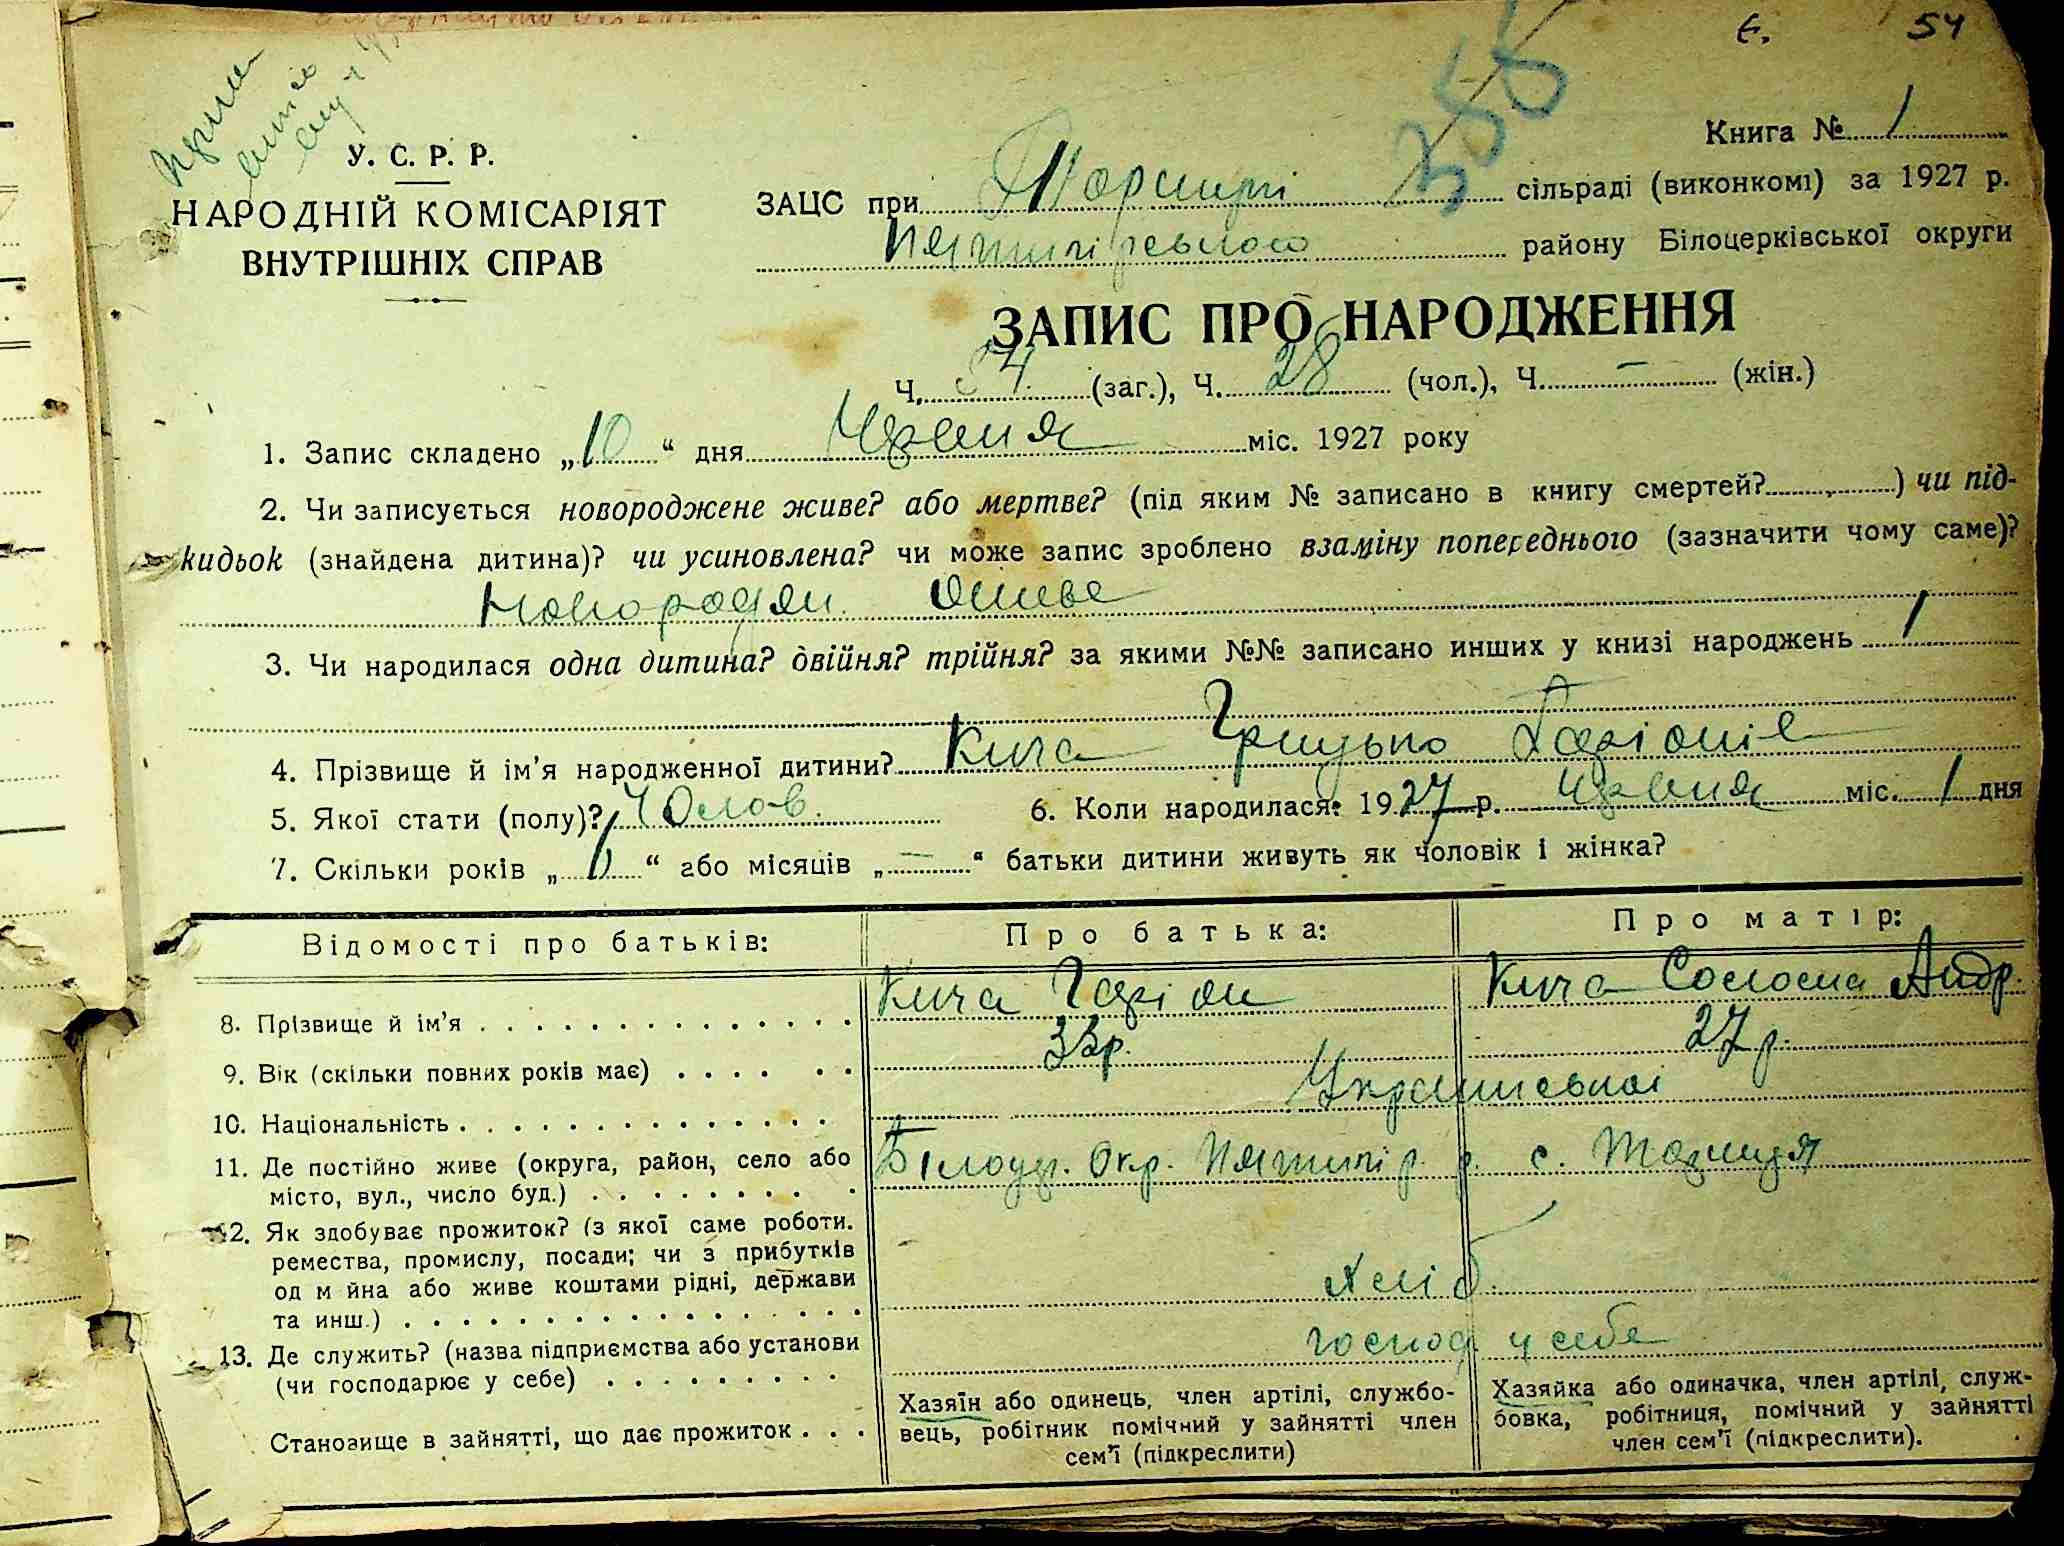 Є. 54
358
Книга № 1
У. С. Р. Р.
НАРОДНІЙ КОМІСАРІЯТ
ВНУТРІШНІХ СПРАВ
ЗАЦС при сільраді (виконкомі) за 1927 р.
Пятигірського району Білоцерківської округи
ЗАПИС ПРО НАРОДЖЕННЯ
Ч. 54 (заг.), Ч. 28 (чол.), Ч. — (жін.)
1. Запис складено „10“ дня Червня міс. 1927 року
2. Чи записується новороджене живе? або мертве? (під яким № записано в книгу смертей? ) чи під-
кидьок (знайдена дитина)? чи усиновлена? чи може запис зроблено взаміну попереднього (зазначити чому саме)?
живе
3. Чи народилася одна дитина? двійня? трійня? за якими №№ записано инших у книзі народжень 1
4. Прізвище й ім'я народженної дитини? Кича Грицько
5. Якої стати (полу)? Чолов. 6. Коли народилася: 1927 р. Червня міс. 1 дня
7. Скільки років „ “ або місяців „—“ батьки дитини живуть як чоловік і жінка?
Відомості про батьків: Про батька: Про матір:
8. Прізвище й ім'я Кича Кича Солоха Андр.
9. Вік (скільки повних років має) 33р. 27 р.
10. Національність Української
11. Де постійно живе (округа, район, село або
місто, вул., число буд.) Білоцер. Окр. Пятигір. р. с.
12. Як здобуває прожиток? (з якої саме роботи.
ремества, промислу, посади; чи з прибутків
од м йна або живе коштами рідні, держави
та инш.) хліб.
13. Де служить? (назва підприємства або установи
(чи господарює у себе) господ у себе
Становище в зайнятті, що дає прожиток
Хазяїн або одинець, член артілі, службо-
вець, робітник помічний у зайнятті член
сем'ї (підкреслити)
Хазяйка або одиначка, член артілі, служ-
бовка, робітниця, помічний у зайнятті
член сем'ї (підкреслити).